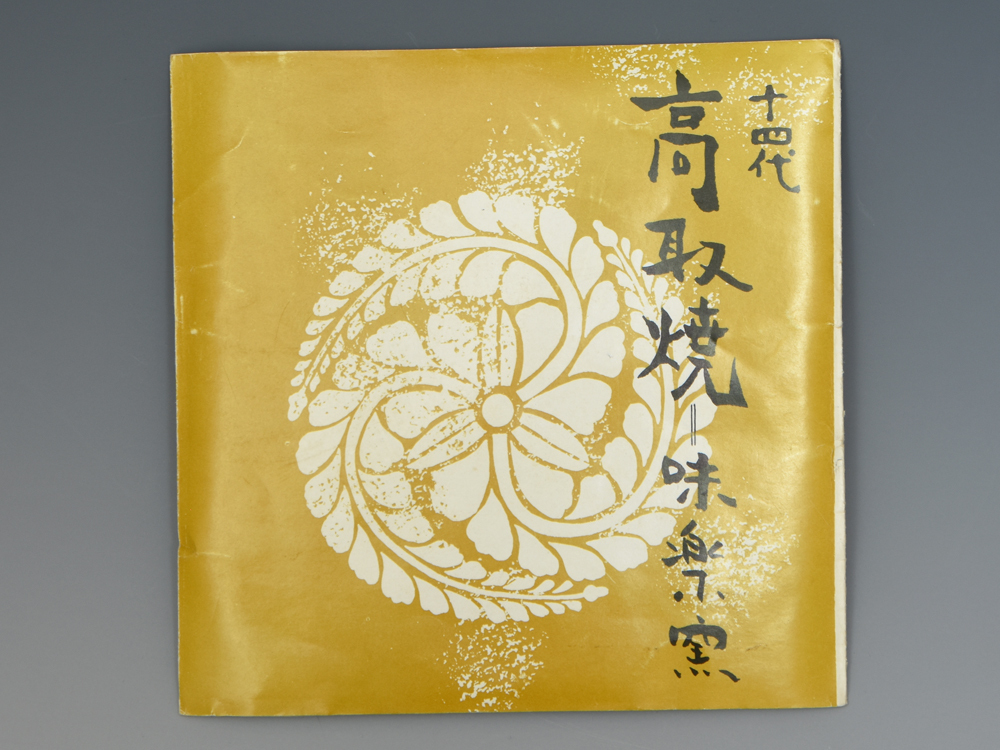 十四代
高取焼＝味楽窯